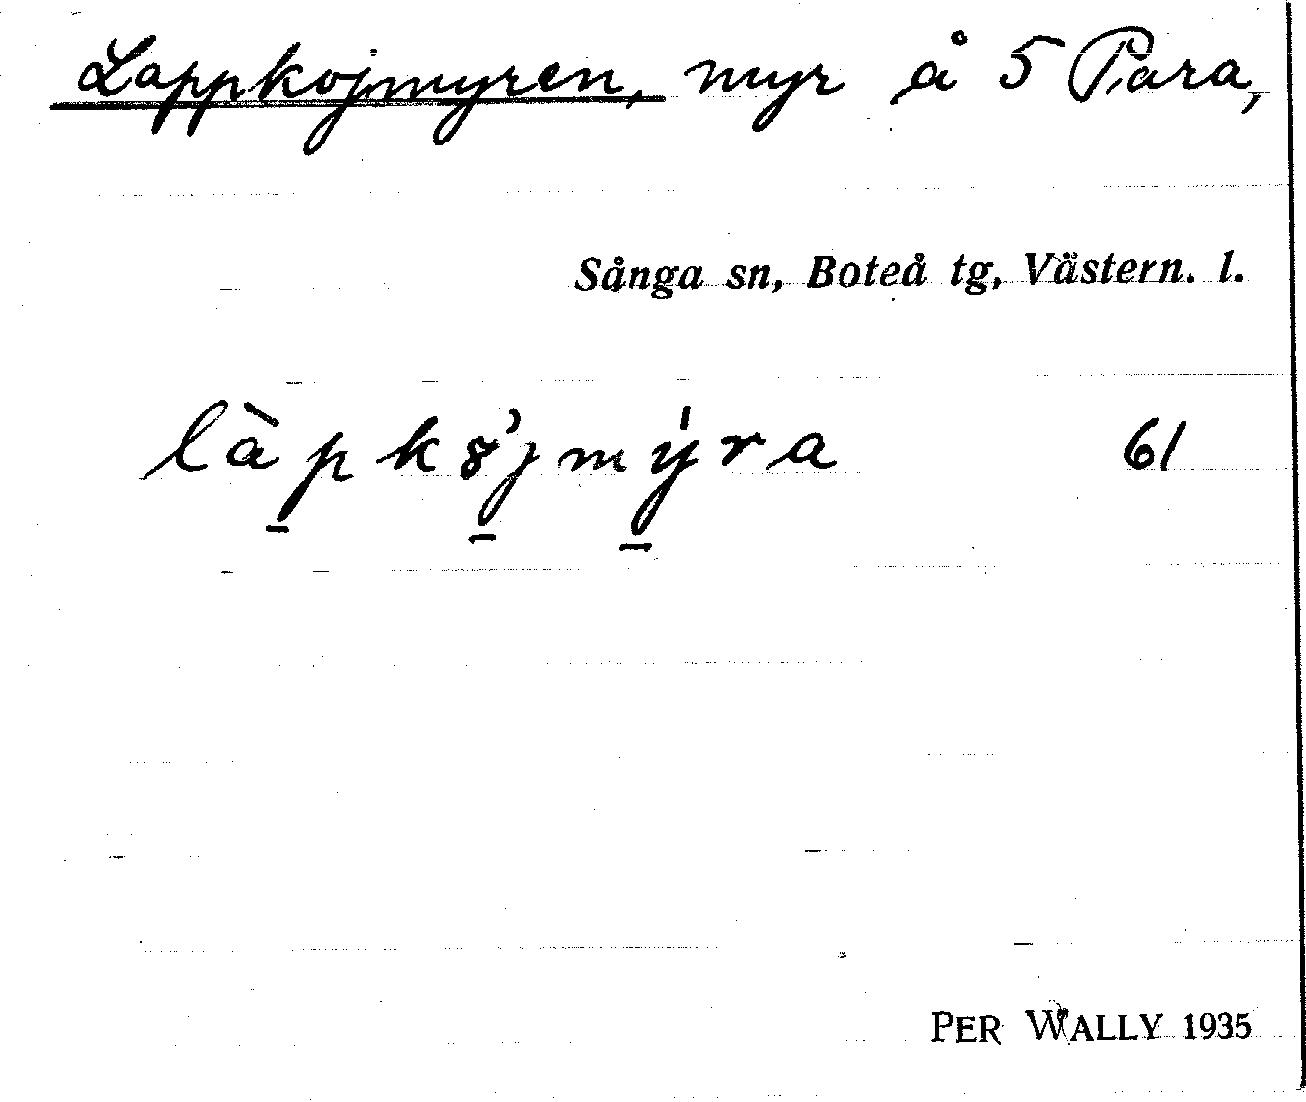 Lappkojmyren, myr å 5 Para,
Sånga sn, Boteå tg, Västern. l.
làpk8̓jmýra 61
PER WALLY 1935